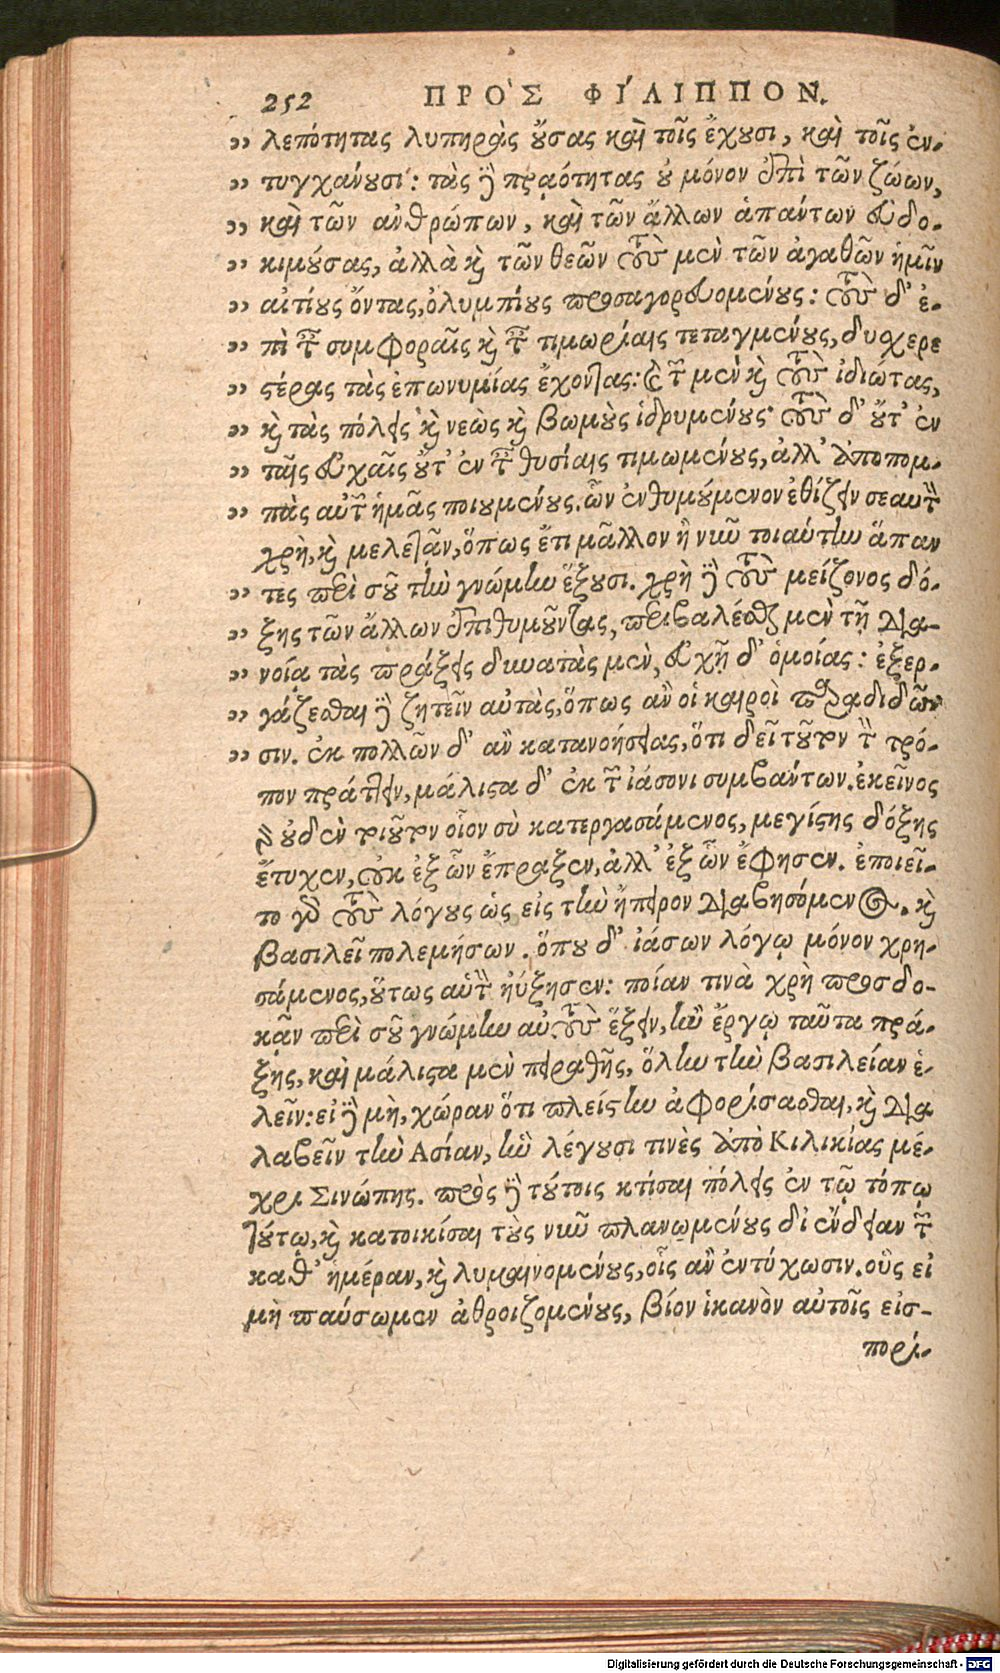 252 ΠΡΟ᾽Σ ΦΙ´ΛΙΠΠΟΝ.
„ λεπότητας λυπηρὰς οὔσας καὶ τοῖς ἔχουσι, καὶ τοῖς ἐν-
„ τυγχάνουσι: τὰς δὲ πραότητας οὐ μόνον ἐπὶ τῶν ζώων,
„ καὶ τῶν ἀνθρώπων, καὶ τῶν ἄλλων ἁπάντων εὐδο-
„ κιμούσας, ἀλλὰ καὶ τῶν θεῶν τοὺς μὲν τῶν ἀγαθῶν ἡμῖν
„ αἰτίους ὄντας, ὀλυμπίους προσαγορευομένους: τοὺς δ᾽ ἐ-
„ πὶ ταῖς συμφοραῖς καὶ ταῖς τιμωρίαις τεταγμένους, δυσχερε
„ στέρας τὰς ἐπωνυμίας ἔχοντας: καὶ τῶν μὲν καὶ τοὺς ἰδιώτας,
„ καὶ τὰς πόλεις καὶ νεὼς καὶ βωμοὺς ἱδρυμένους· τοὺς δ᾽ οὔτ᾽ ἐν
„ ταῖς εὐχαῖς οὔτ᾽ ἐν ταῖς θυσίαις τιμωμένους, ἀλλ᾽ ἀποπομ-
„ πὰς αὐτῶν ἡμᾶς ποιουμένους. ὧν ἐνθυμούμενον ἐθίζειν σεαυτὸν
χρὴ, καὶ μελετᾶν, ὅπως ἔτι μᾶλλον ἢ νῦν τοιαύτην ἅπαν
„ τες περὶ σοῦ τὴν γνώμην ἕξουσι. χρὴ δὲ τοὺς μείζονος δό-
„ ξης τῶν ἄλλων ἐπιθυμοῦντας, περιβαλέσθαι μὲν τῇ δια-
„ νοίᾳ τὰς πράξεις δυνατὰς μὲν, εὐχῇ δ᾽ ὁμοίας: ἐξερ-
„ γάζεσθαι δὲ ζητεῖν αὐτὰς, ὅπως ἂν οἱ καιροὶ παραδιδῶ
„ σιν. ἐκ πολλῶν δ᾽ ἂν κατανοήσειας, ὅτι δεῖ τοῦτον τὸν τρό-
πον πράττειν, μάλιστα δ᾽ ἐκ τῶν ἰάσονι συμβάντων. ἐκεῖνος
γὰρ οὐδὲν τοιοῦτον οἷον σὺ κατεργασάμενος, μεγίστης δόξης
ἔτυχεν, οὐκ ἐξ ὧν ἔπραξεν, ἀλλ᾽ ἐξ ὧν ἔφησεν. ἐποιεῖ-
το γὰρ τοὺς λόγους ὡς εἰς τὴν ἤπειρον διαβησόμενος. καὶ
βασιλεῖ πολεμήσων. ὅπου δ᾽ ἰάσων λόγῳ μόνον χρη-
σάμενος, οὕτως αὑτὸν ηὔξησεν: ποίαν τινὰ χρὴ προσδο-
κᾶν περὶ σοῦ γνώμην αὐτοὺς ἕξειν, ἢν ἔργῳ ταῦτα πρά-
ξῃς, καὶ μάλιστα μὲν πειραθῇς, ὅλην τὴν βασιλείαν ἑ-
λεῖν: εἰ δὲ μὴ, χώραν ὅτι πλείστην ἀφορίσασθαι, καὶ δια
λαβεῖν τὴν Ἀσίαν, ἣν λέγουσι τινὲς ἀπὸ Κιλικίας μέ-
χρι Σινώπης. πρὸς δὲ τούτοις κτίσαι πόλεις ἐν τῷ τόπῳ
τούτῳ, καὶ κατοικίσαι τοὺς νῦν πλανωμένους δι᾽ ἔνδειαν τῶν
καθ᾽ ἡμέραν, καὶ λυμαινομένους, οἷς ἂν ἐντύχωσιν. οὓς εἰ
μὴ παύσωμεν ἀθροιζομένους, βίον ἱκανὸν αὐτοῖς εἰσ-
πορι-
Digitalisierung gefördert durch die Deutsche Forschungsgemeinschaft - DFG